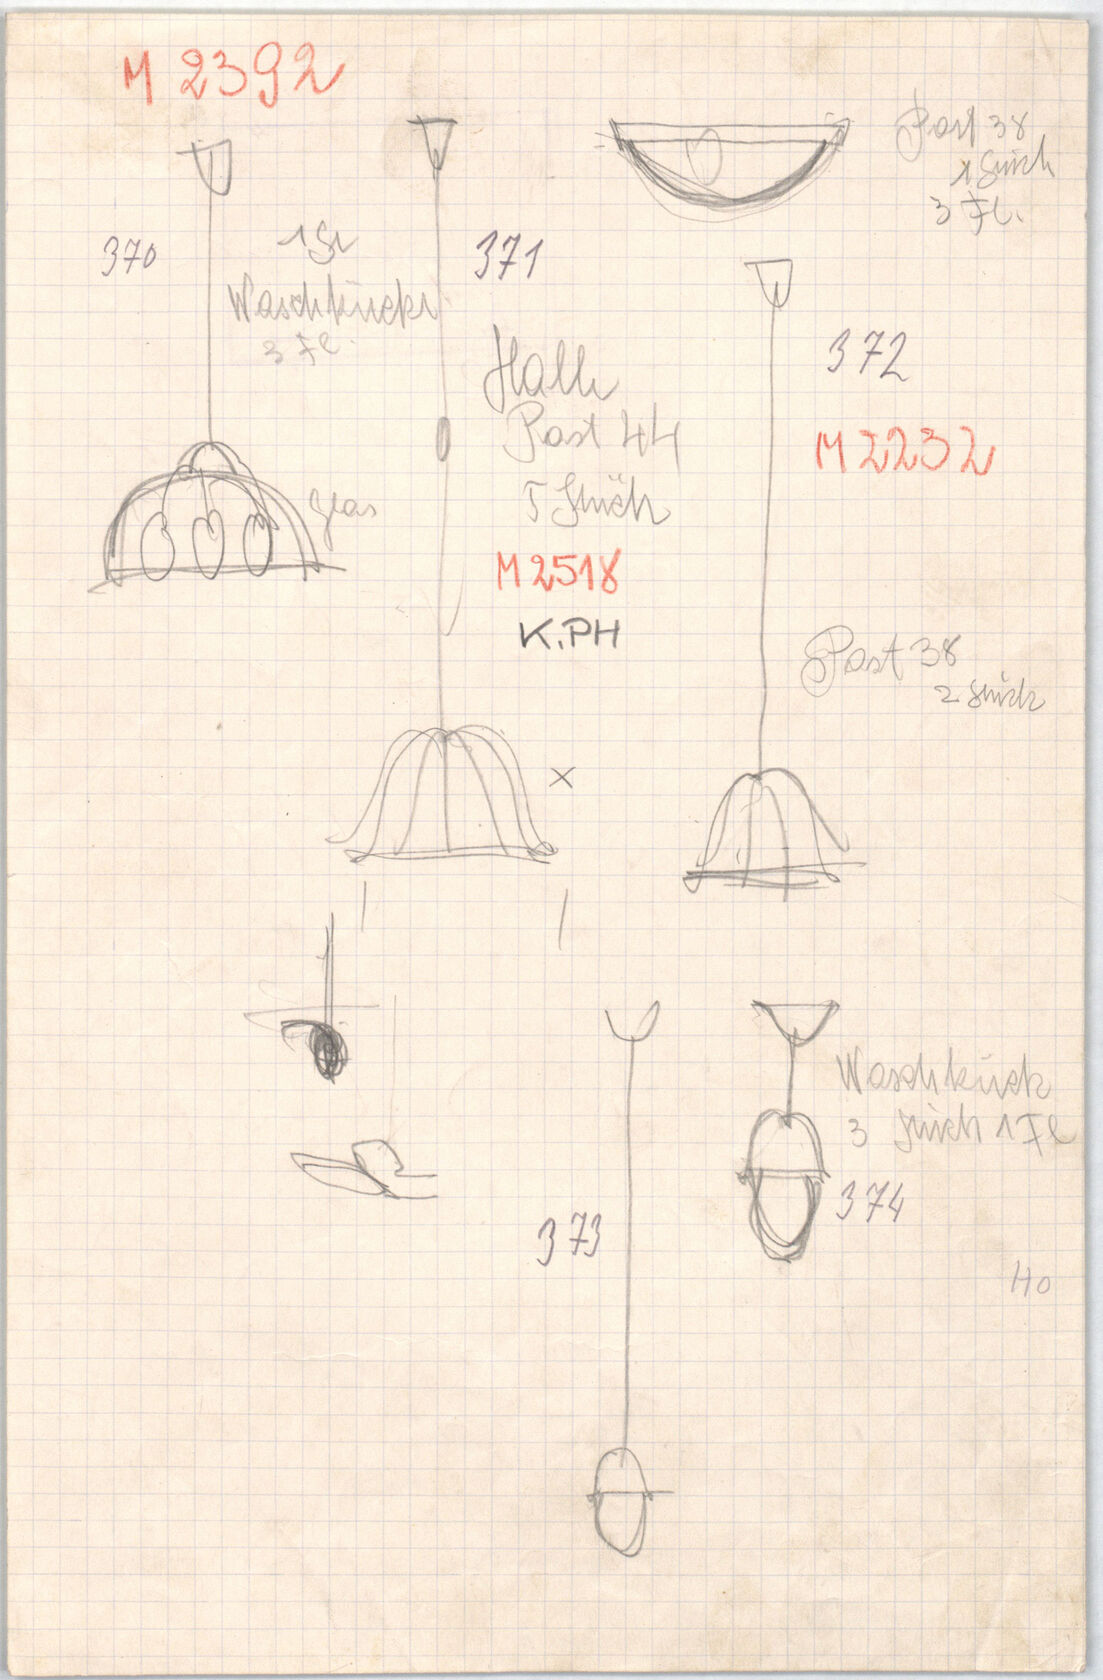 M 2392
370
1 St
Waschküche
3 Fl.
glas
371
Halle
Post 44
5 Stück
M 2518
K.PH
x
Post 38
1 Stück
3 Fl.
372
M 2232
Post 38
2 Stück
373
Waschküch
3 Stück 1 Fl
374